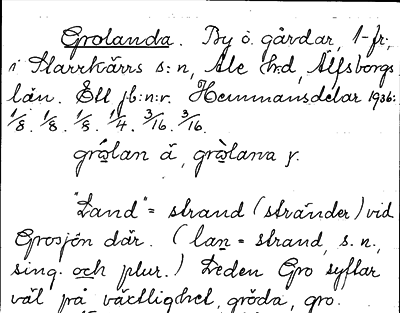 Grolanda. By ö. gårdar, 1-fr:,
i Starrkärrs s:n, Ale h:d, Älfsborgs
län. Ett jb:n:r. Hemmansdelar 1936:
1/8. 1/8. 1/8. 1/4. 3/16. 3/16.
grὼlan ä, grὼlana y.
"Land" = strand (stränder) vid
Grosjön där. (lan = strand, s. n.,
sing. och plur.) Leden Gro syftar
väl på växtlighet, gröda, gro.